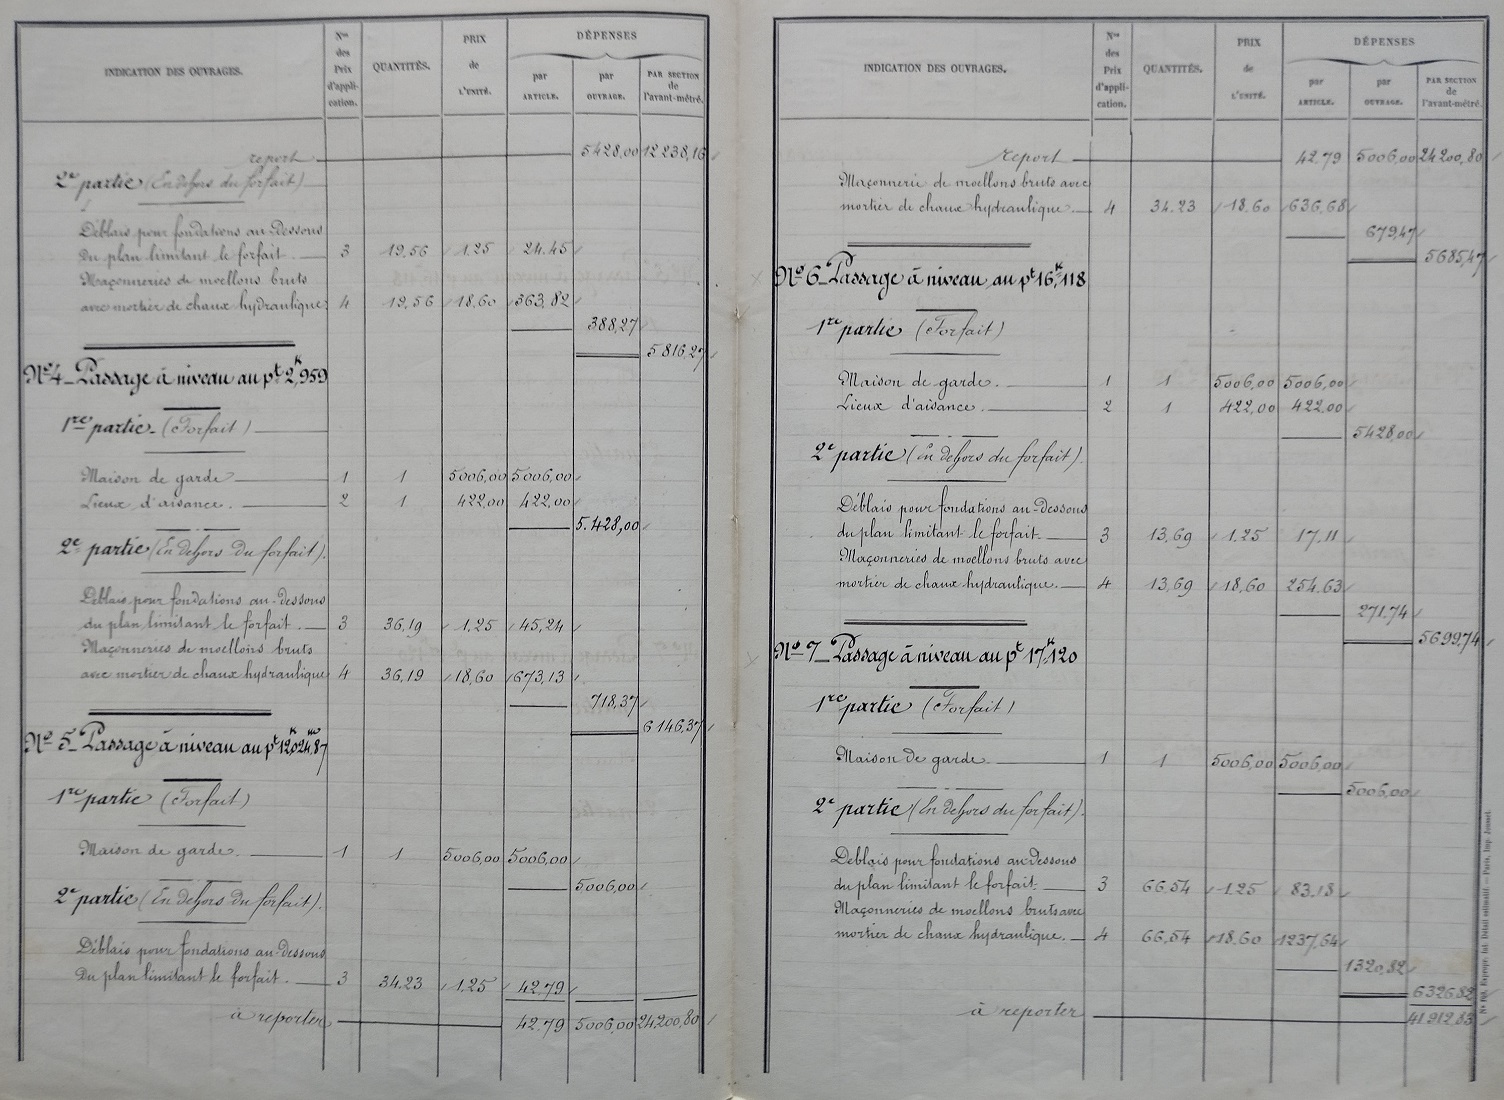 INDICATION DES OUVRAGES.
Nos des Prix d'appli-cation.
QUANTITÉS.
PRIX de L'UNITÉ.
DÉPENSES
par ARTICLE.
par OUVRAGE.
PAR SECTION de l'avant-métré.
report 5428,00 12238,16
2e partie (En dehors du forfait)
Déblais pour fondations au-dessous
du plan limitant le forfait. 3 19,56 1.25 24.45
Maçonneries de moellons bruts
avec mortier de chaux hydraulique. 4 19,56 18,60 363,82
388,27
5816,27
No 4_Passage à niveau au pt 2k,959
1re partie_(Forfait)
Maison de garde 1 1 5006,00 5006,00
Lieux d'aisance. 2 1 422,00 422,00
5.428,00
2e partie (En dehors du forfait).
Déblais pour fondations au-dessous
du plan limitant le forfait. 3 36,19 1,25 45,24
Maçonneries de moellons bruts
avec mortier de chaux hydraulique 4 36,19 18,60 673,13
718,37
6146,37
No 5_Passage à niveau au pt 12k,024m,87
1re partie (Forfait)
Maison de garde. 1 1 5006,00 5006,00
5006,00
2e partie (En dehors du forfait).
Déblais pour fondations au-dessous
du plan limitant le forfait. 3 34.23 1,25 42,79
à reporter 42.79 5006,00 24200,80
INDICATION DES OUVRAGES.
Nos des Prix d'appli-cation.
QUANTITÉS.
PRIX de L'UNITÉ.
DÉPENSES
par ARTICLE.
par OUVRAGE.
PAR SECTION de l'avant-métré.
report 42.79 5006,00 24200,80
Maçonnerie de moellons bruts avec
mortier de chaux hydraulique. 4 34.23 18.60 636,68
679,47
5685,47
No 6_Passage à niveau au pt 16k,118
1re partie (Forfait)
Maison de garde. 1 1 5006,00 5006,00
Lieux d'aisance. 2 1 422,00 422,00
5428,00
2e partie (En dehors du forfait).
Déblais pour fondations au-dessous
du plan limitant le forfait. 3 13,69 1.25 17,11
Maçonneries de moellons bruts avec
mortier de chaux hydraulique. 4 13,69 18,60 254.63
271.74
5699,74
No 7_Passage à niveau au pt 17k,120
1re partie (Forfait)
Maison de garde. 1 1 5006,00 5006,00
5006,00
2e partie (En dehors du forfait).
Déblais pour fondations au-dessous
du plan limitant le forfait. 3 66,54 1.25 83,18
Maçonneries de moellons bruts avec
mortier de chaux hydraulique. 4 66,54 18.60 1237,64
1320,82
6326,82
à reporter 41912,83